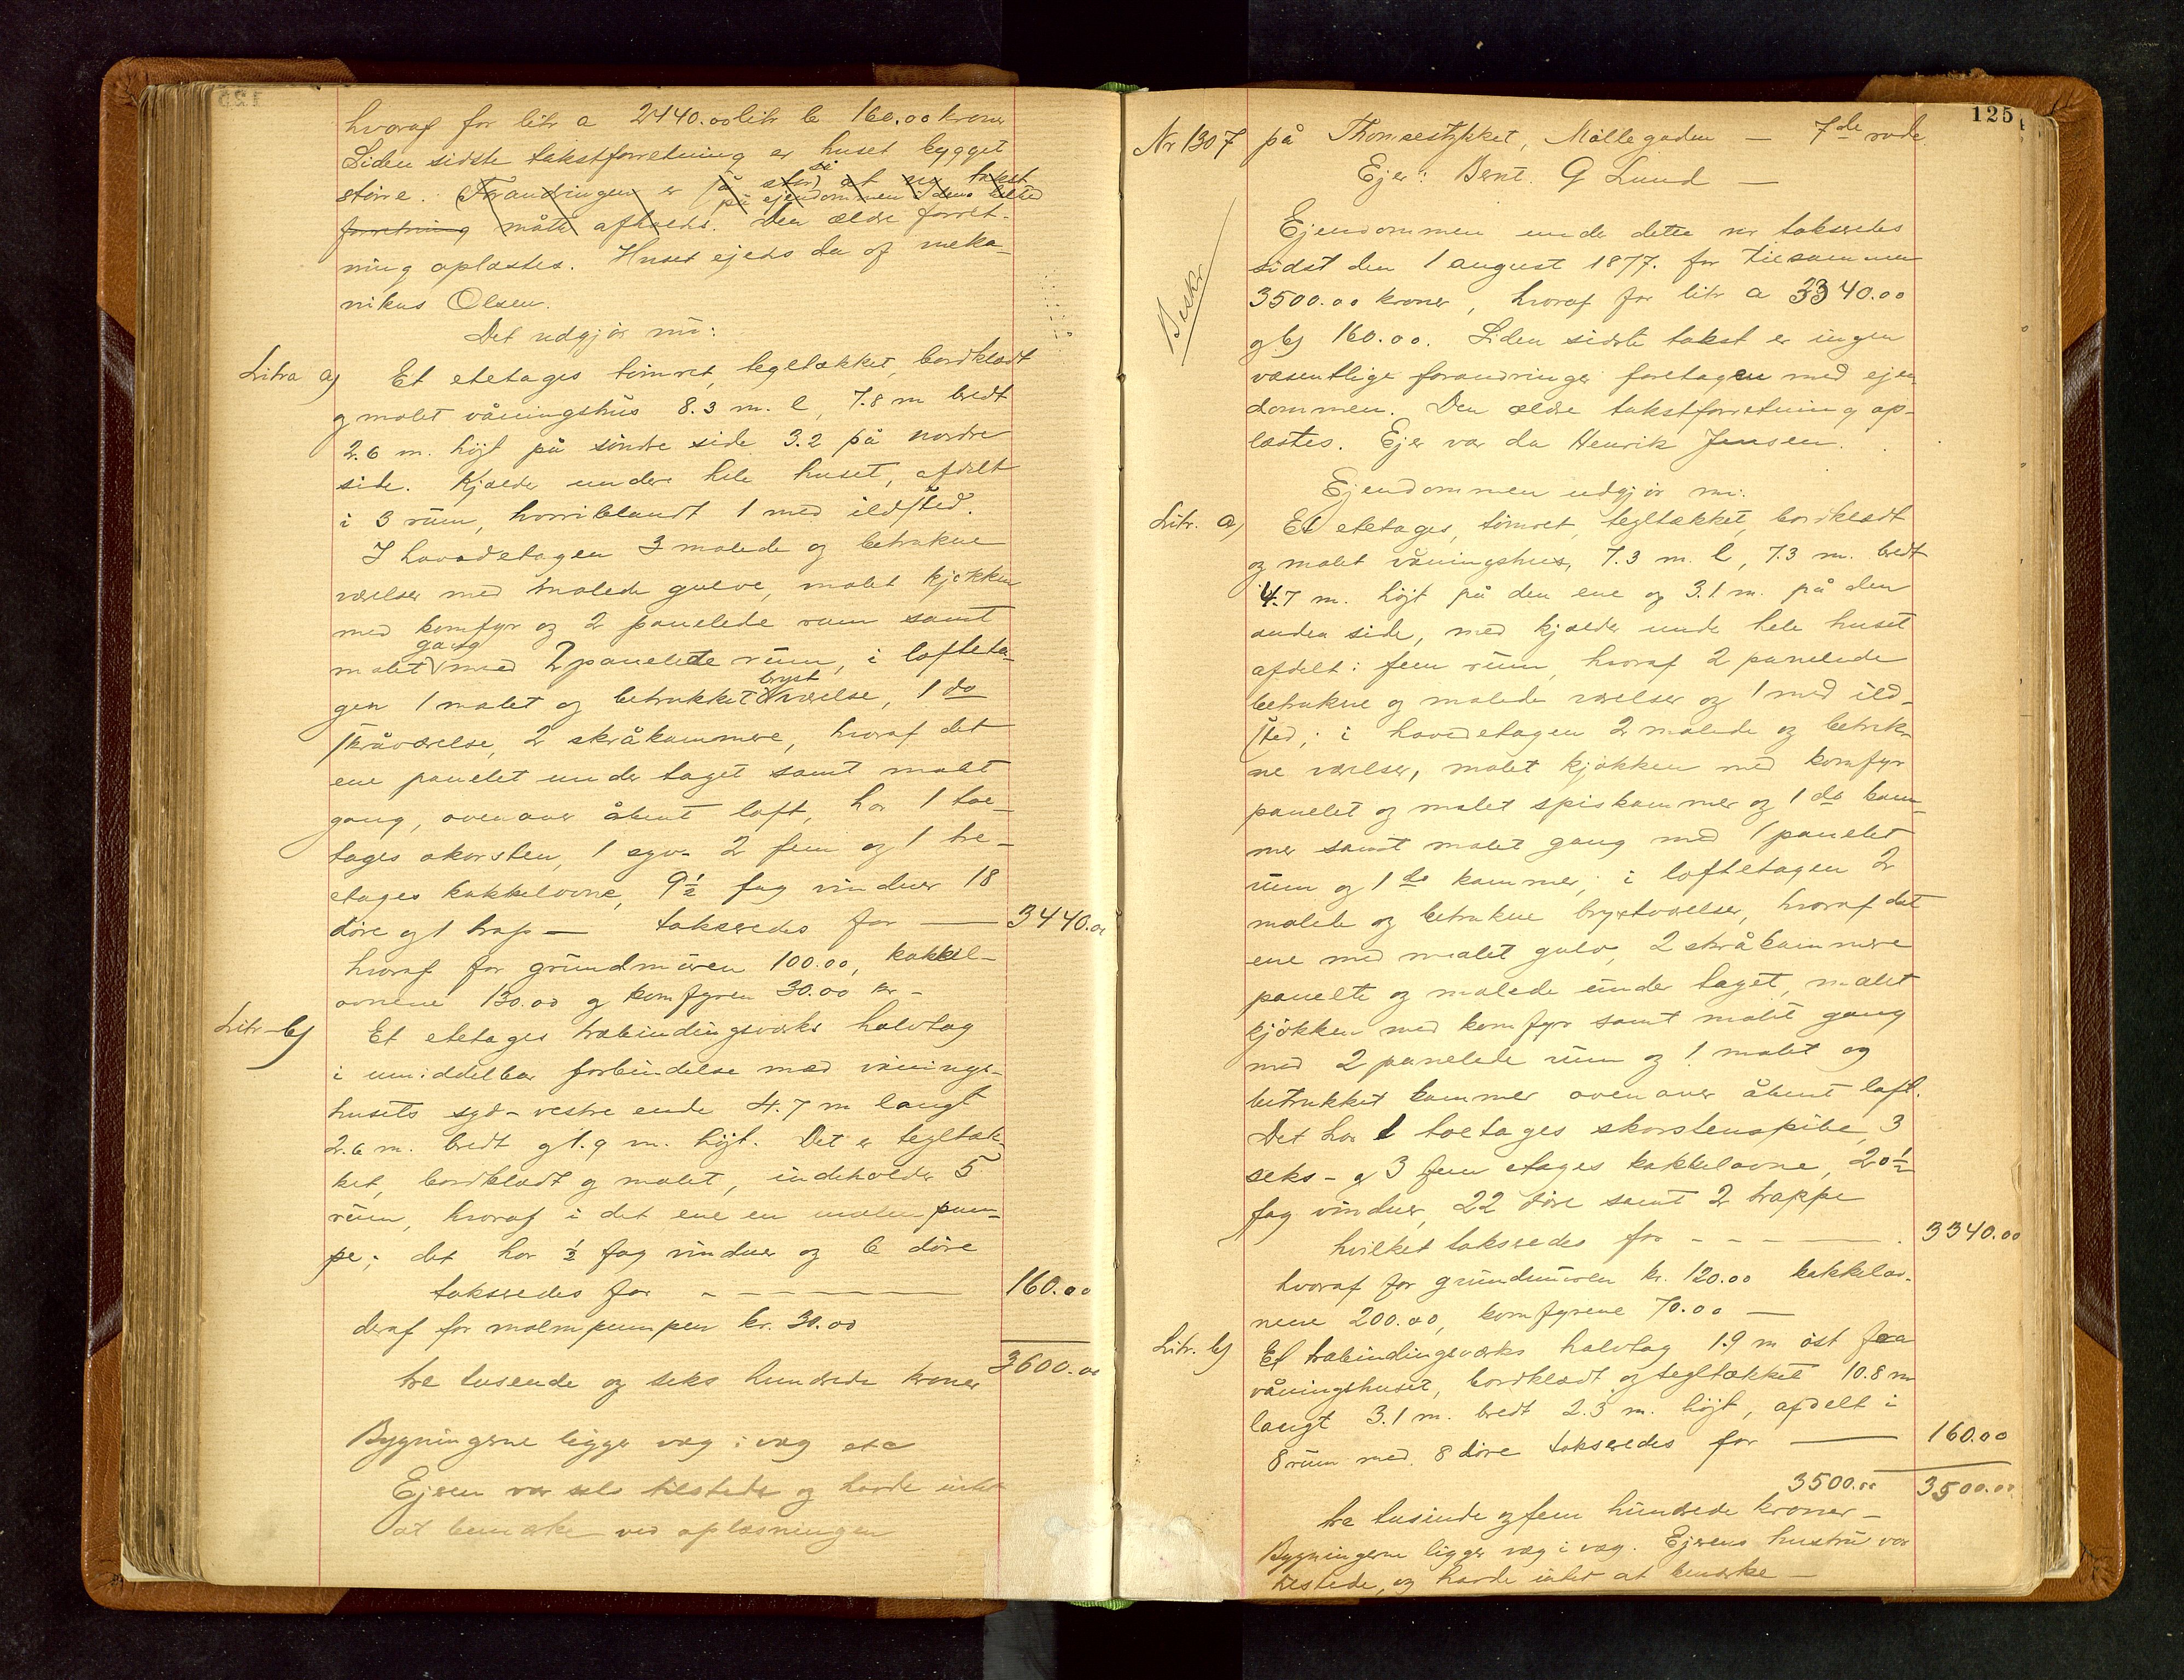 hvoraf for litr a 2440.00 litr b 160.00 kroner
Siden sidste takstforretning er huset bygget
större. Forandringen er så stor, at ny takst
på ejendommen i dens helhed
forretning måtte afholdes. Den ældre forret-
ning oplæstes. Huset ejedes da af meka-
nikus Olsen.
Det udgjör nu:
Litra a) Et etetages tömret, tegltækket, bordklædt
og malet våningshus 8.3 m. l, 7.8 m bredt
2.6 m. höjt på söndre side 3.2 på nordre
side. Kjælder under hele huset, afdelt
i 3 rum, hvoriblandt 1 med ildsted.
I hovedetagen 3 malede og betrukne
værelser med malede gulve, malet kjökken
med komfyr og 2 panelede rum samt
malet gang med 2 panelede rum, i lofteta-
gen 1 malet og betrukket brystværelse, 1 do
skråværelse, 2 skråkammere, hvoraf det
ene panelet under taget samt malet
gang, ovenover åbent loft, har 1 toe-
tages skorsten, 1 syv- 2 fem og 1 tre-
etages kakkelovne, 9½ fag vinduer 18
döre og 1 trap — takseredes for — 3440.00
hvoraf for grundmuren 100.00, kakkel-
ovnene 130.00 og komfyren 30.00 kr –
Litr b) Et etetages træbindingsværks halvtag
i umiddelbar forbindelse med vånings-
husets syd-vestre ende 4.7 m langt
2.6 m. bredt og 1.9 m. höjt. Det er tegltæk-
ket, bordklædt og malet, indeholder 5
rum, hvoraf i det ene en malm pum-
pe; det har ½ fag vinduer og 6 döre
takseredes for — 160.00
deraf for malmpumpen kr. 30.00
tre tusende og seks hundrede kroner 3600.00
Bygningerne ligger væg i væg etc
Ejeren var selv tilstede og havde intet
at bemærke ved oplæsningen
125
Nr 1307 på Thonsestykket, Möllegaden — 7de rode
Ejer: Bernt. G Lund —
Beskr
Ejendommen unde dette nr takseredes
sidst den 1 august 1877. for tilsammen
3500.00 kroner, hvoraf for litr a 3340.00
og b) 160.00. Siden sidste takst er ingen
væsentlige forandringer foretagen med ejen
dommen. Den ældre takstforretning op-
læstes. Ejer var da Henrik Jensen.
Ejendommen udgjör nu:
Litr. a) Et etetages, tömret, tegltækket, bordklædt
og malet våningshus, 7.3 m. l, 7.3 m. bredt
4.7 m. höjt på den ene og 3.1 m. på den
anden side, med kjælder unde hele huset
afdelt i fem rum, hvoraf 2 panelede
betrukne og malede værelser og 1 med ild-
sted; i hovedetagen 2 malede og betruk-
ne værelser, malet kjökken med komfyr
panelet og malet spiskammer og 1 do kam-
mer samt malet gang med 1 panelet
rum og 1 do kammer; i loftetagen 2
malede og betrukne brystværelser, hvoraf det
ene med malet gulv, 2 skråkammere
panelte og malede under taget, malet
kjökken med komfyr samt malet gang
med 2 panelede rum og 1 malet og
betrukket kammer ovenover åbent loft.
Det har 1 toetages skorstenspibe, 3
seks- og 3 fem etages kakkelovne, 20½
fag vinduer, 22 döre samt 2 trappe
hvilket takseredes for — 3340.00
hvoraf for grundmuren kr. 120.00 kakkelov-
nene 200.00, komfyrene 70.00 —
Litr. b) Et træbindingsværks halvtag 1.9 m öst fra
våningshuset, bordklædt og tegltækket 10.8 m
langt 3.1 m. bredt 2.3 m. höjt, afdelt i
8 rum med 8 döre takseredes for — 160.00
3500.00 3500.00
tre tusinde og fem hundrede kroner –
Bygningerne ligger væg i væg. Ejerens hustru var
tilstede, og havde intet at bemærke —